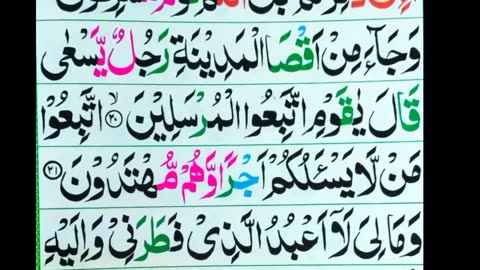 وَجَآءَ مِنْ اَقْصَا الْمَدِيْنَةِ رَجُلٌ يَّسْعٰى
قَالَ يٰقَوْمِ اتَّبِعُوا الْمُرْسَلِيْنَ ۲۰ اتَّبِعُوْا
مَنْ لَّا يَسْـَٔلُكُمْ اَجْرًا وَّهُمْ مُّهْتَدُوْنَ ۲۱
وَمَا لِىَ لَآ اَعْبُدُ الَّذِىْ فَطَرَنِىْ وَاِلَيْهِ